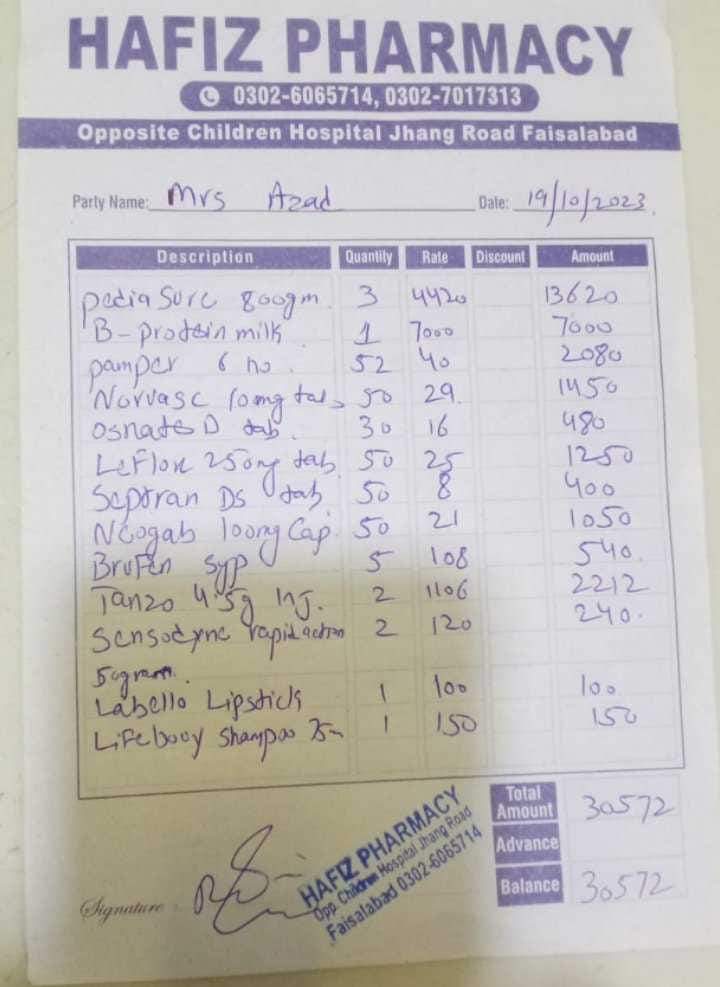 HAFIZ PHARMACY
0302-6065714, 0302-7017313
Opposite Children Hospital Jhang Road Faisalabad
Party Name: Mrs Azad Date: 19/10/2023
Description Quantity Rate Discount Amount
pedia Sure 800gm 3 4420 13620
B-protein milk 1 7000 7000
pamper 6 no. 52 40 2080
Norvasc 10mg tab 50 29. 1450
Osnate D tab. 30 16 480
Leflox 250mg tab 50 25 1250
Septran DS tab 50 8 400
Neogab 100mg Cap. 50 21 1050
Brufen Syp 5 108 540.
Tanzo 4.5g Inj. 2 1106 2212
Sensodyne rapid action 2 120 240.
50gram.
Labello Lipstick 1 100 100
Lifebouy Shampoo 1 150 150
Total Amount 30572
Advance
Balance 30572
Signature
HAFIZ PHARMACY
Opp. Children Hospital Jhang Road
Faisalabad 0302-6065714